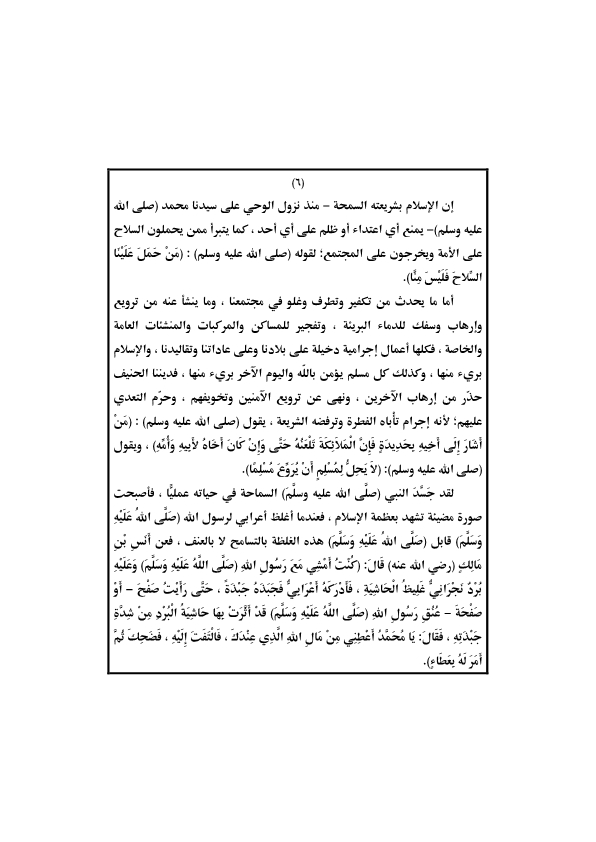 (٦)
إن الإسلام بشريعته السمحة – منذ نزول الوحي على سيدنا محمد (صلى الله
عليه وسلم)– يمنع أي اعتداء أو ظلم على أي أحد ، كما يتبرأ ممن يحملون السلاح
على الأمة ويخرجون على المجتمع؛ لقوله (صلى الله عليه وسلم) : (مَنْ حَمَلَ عَلَيْنَا
السِّلاحَ فَلَيْسَ مِنَّا).
أما ما يحدث من تكفير وتطرف وغلو في مجتمعنا ، وما ينشأ عنه من ترويع
وإرهاب وسفك للدماء البريئة ، وتفجير للمساكن والمركبات والمنشئات العامة
والخاصة ، فكلها أعمال إجرامية دخيلة على بلادنا وعلى عاداتنا وتقاليدنا ، والإسلام
بريء منها ، وكذلك كل مسلم يؤمن بالله واليوم الآخر بريء منها ، فديننا الحنيف
حذّر من إرهاب الآخرين ، ونهى عن ترويع الآمنين وتخويفهم ، وحرّم التعدي
عليهم؛ لأنه إجرام تأباه الفطرة وترفضه الشريعة ، يقول (صلى الله عليه وسلم) : (مَنْ
أَشَارَ إِلَى أَخِيهِ بِحَدِيدَةٍ فَإِنَّ الْمَلاَئِكَةَ تَلْعَنُهُ حَتَّى وَإِنْ كَانَ أَخَاهُ لأَبِيهِ وَأُمِّهِ) ، ويقول
(صلى الله عليه وسلم): (لاَ يَحِلُّ لِمُسْلِمٍ أَنْ يُرَوِّعَ مُسْلِمًا).
لقد جَسَّدَ النبي (صلَّى الله عليه وسلَّمَ) السماحة في حياته عمليًّا ، فأصبحت
صورة مضيئة تشهد بعظمة الإسلام ، فعندما أغلظ أعرابي لرسول الله (صَلَّى اللهُ عَلَيْهِ
وَسَلَّمَ) قابل (صَلَّى اللهُ عَلَيْهِ وَسَلَّمَ) هذه الغلظة بالتسامح لا بالعنف ، فعن أَنَسِ بْنِ
مَالِكٍ (رضي الله عنه) قَالَ: (كُنْتُ أَمْشِي مَعَ رَسُولِ اللهِ (صَلَّى اللَّهُ عَلَيْهِ وَسَلَّمَ) وَعَلَيْهِ
بُرْدٌ نَجْرَانِيٌّ غَلِيظُ الْحَاشِيَةِ ، فَأَدْرَكَهُ أَعْرَابِيٌّ فَجَبَذَهُ جَبْذَةً ، حَتَّى رَأَيْتُ صَفْحَ – أَوْ
صَفْحَةَ – عُنُقِ رَسُولِ اللهِ (صَلَّى اللَّهُ عَلَيْهِ وَسَلَّمَ) قَدْ أَثَّرَتْ بِهَا حَاشِيَةُ الْبُرْدِ مِنْ شِدَّةِ
جَبْذَتِهِ ، فَقَالَ: يَا مُحَمَّدُ أَعْطِنِي مِنْ مَالِ اللهِ الَّذِي عِنْدَكَ ، فَالْتَفَتَ إِلَيْهِ ، فَضَحِكَ ثُمَّ
أَمَرَ لَهُ بِعَطَاءٍ).